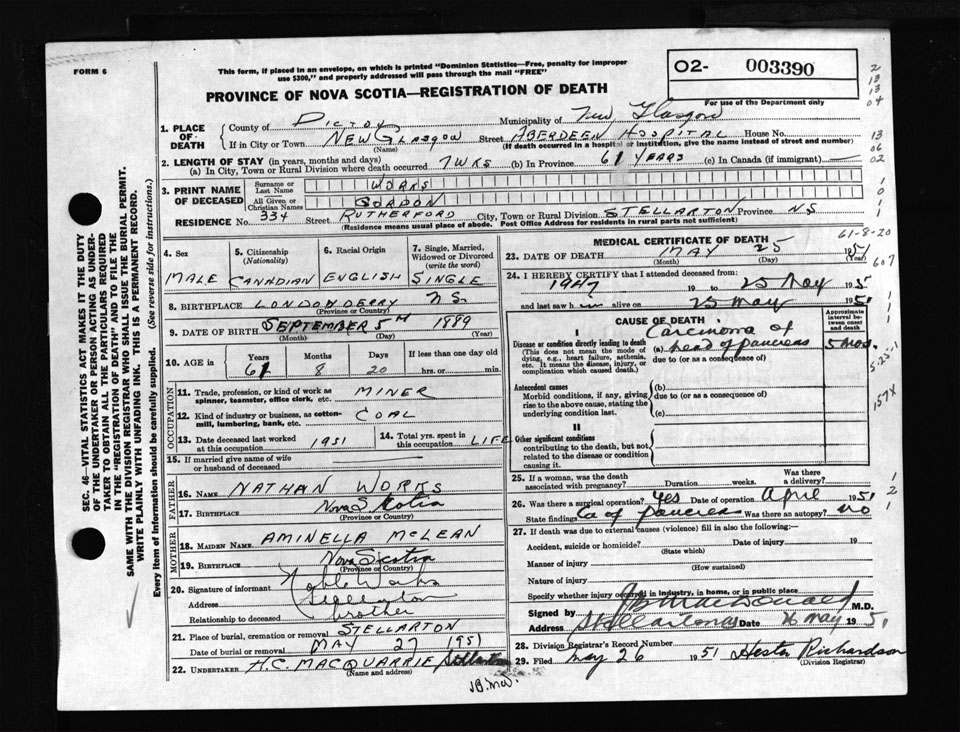 FORM 6
This form, if placed in an envelope, on which is printed "Dominion Statistics—Free, penalty for improper
use $300," and properly addressed will pass through the mail "FREE"
PROVINCE OF NOVA SCOTIA—REGISTRATION OF DEATH
O2- 003390
For use of the Department only
2
13
13
04
13
06
02
1. PLACE OF DEATH
County of PICTOU Municipality of New Glasgow
If in City or Town NEW GLASGOW Street ABERDEEN HOSPITAL House No.
(Name) (If death occurred in a hospital or institution, give the name instead of street and number)
2. LENGTH OF STAY (in years, months and days)
(a) In City, Town or Rural Division where death occurred 7 WKS (b) In Province 61 YEARS (c) In Canada (if immigrant) —
3. PRINT NAME OF DECEASED
Surname or Last Name WORKS
All Given or Christian Names GORDON
RESIDENCE No. 334 Street RUTHERFORD City, Town or Rural Division STELLARTON Province NS
(Residence means usual place of abode. Post Office Address for residents in rural parts not sufficient)
4. Sex
MALE
5. Citizenship
(Nationality)
CANADIAN
6. Racial Origin
ENGLISH
7. Single, Married, Widowed or Divorced
(write the word)
SINGLE
8. BIRTHPLACE LONDONDERRY N S.
(Province or Country)
9. DATE OF BIRTH SEPTEMBER 5TH 1889
(Month) (Day) (Year)
10. AGE in
Years Months Days If less than one day old
61 8 20 hrs. or min.
OCCUPATION
11. Trade, profession, or kind of work as spinner, teamster, office clerk, etc. MINER
12. Kind of industry or business, as cotton-mill, lumbering, bank, etc. COAL
13. Date deceased last worked at this occupation 1951
14. Total yrs. spent in this occupation LIFE
15. If married give name of wife or husband of deceased
FATHER
16. NAME NATHAN WORKS
17. BIRTHPLACE Nova Scotia
(Province or Country)
MOTHER
18. MAIDEN NAME AMINELLA McLEAN
19. BIRTHPLACE Nova Scotia
(Province or Country)
20. Signature of informant Noble Works
Address Stellarton
Relationship to deceased brother
21. Place of burial, cremation or removal STELLARTON
Date of burial or removal MAY 27 1951
22. UNDERTAKER H.C. MACQUARRIE Stellarton
(Name and address)
JB.McD.
MEDICAL CERTIFICATE OF DEATH
61-8-20
23. DATE OF DEATH MAY 25 1951
(Month) (Day) (Year)
607
24. I HEREBY CERTIFY that I attended deceased from:
1947 19 to 25 May 195
and last saw him alive on 25 May 1951
CAUSE OF DEATH
Approximate interval between onset and death
I
Disease or condition directly leading to death
(This does not mean the mode of dying, e.g., heart failure, asthenia, etc. It means the disease, injury, or complication which caused death.)
(a) Carcinoma of head of pancreas 5 mos.
due to (or as a consequence of)
Antecedent causes
Morbid conditions, if any, giving rise to the above cause, stating the underlying condition last.
(b)
due to (or as a consequence of)
(c)
II
Other significant conditions
contributing to the death, but not related to the disease or condition causing it.
157X
25. If a woman, was the death associated with pregnancy? Duration weeks. Was there a delivery?
26. Was there a surgical operation? Yes Date of operation April 1951
State findings Ca of pancreas Was there an autopsy? no
27. If death was due to external causes (violence) fill in also the following:—
Accident, suicide or homicide? Date of injury 19
(State which)
Manner of injury
(How sustained)
Nature of injury
Specify whether injury occurred in industry, in home, or in public place
Signed by JB MacDonald M.D.
Address Stellarton NS Date 26 May 1951
28. Division Registrar's Record Number
29. Filed May 26 1951 Hester Richardson
(Division Registrar)
SEC. 46—VITAL STATISTICS ACT MAKES IT THE DUTY
OF THE UNDERTAKER OR PERSON ACTING AS UNDER-
TAKER TO OBTAIN ALL THE PARTICULARS REQUIRED
IN THE "REGISTRATION OF DEATH" AND TO FILE THE
SAME WITH THE DIVISION REGISTRAR WHO SHALL ISSUE THE BURIAL PERMIT.
WRITE PLAINLY WITH UNFADING INK. THIS IS A PERMANENT RECORD.
Every item of Information should be carefully supplied. (See reverse side for instructions.)